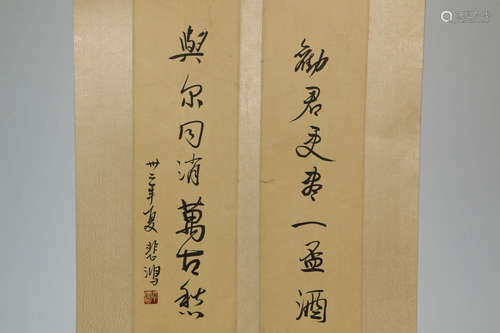 勸君更盡一盃酒
與尔同消萬古愁
卅二年夏 悲鴻